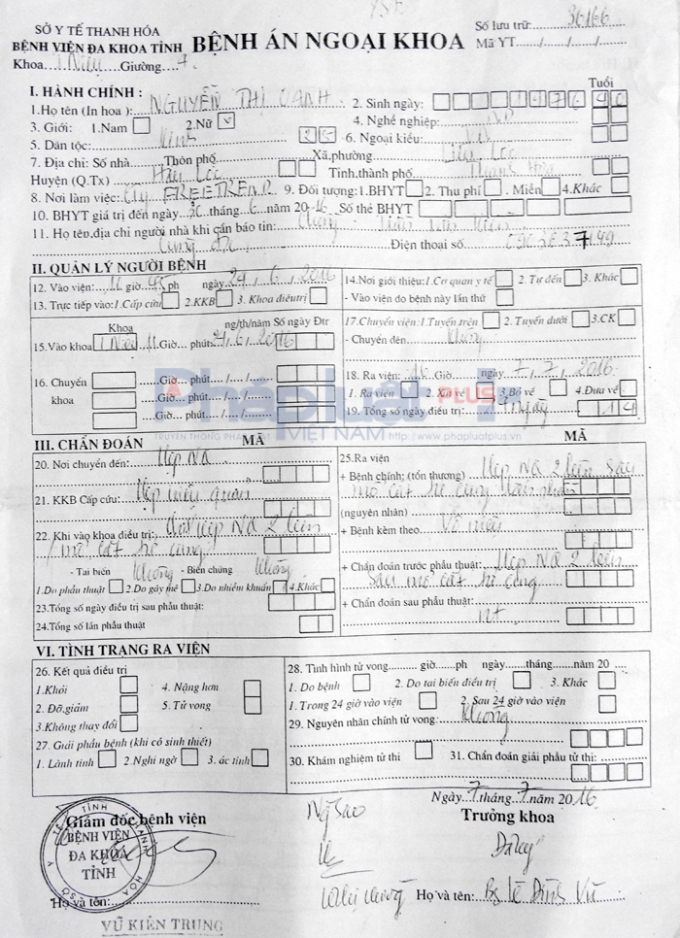 SỞ Y TẾ THANH HÓA
BỆNH VIỆN ĐA KHOA TỈNH
Khoa Giường
BỆNH ÁN NGOẠI KHOA
Số lưu trữ: 36166
Mã YT
I. HÀNH CHÍNH :
Tuổi
1.Họ tên (In hoa ): NGUYỄN THỊ OANH 2. Sinh ngày: 1976 40
3. Giới: 1.Nam 2.Nữ 4. Nghề nghiệp:
5. Dân tộc: Kinh 25 6. Ngoại kiều:
7. Địa chỉ: Số nhà Thôn phố Xã,phường
Huyện (Q.Tx) Hậu Lộc Tỉnh,thành phố Thanh Hóa
8. Nơi làm việc: 9. Đối tượng:1.BHYT 2. Thu phí . Miễn 4.Khác
10. BHYT giá trị đến ngày tháng 6 năm 2016 Số thẻ BHYT
11. Họ tên,địa chỉ người nhà khi cần báo tin:
Điện thoại số
II. QUẢN LÝ NGƯỜI BỆNH
12. Vào viện: giờ 45 ph ngày 24/6/2016
13. Trực tiếp vào:1.Cấp cứu 2.KKB 3. Khoa điều trị
14.Nơi giới thiệu:1.Cơ quan y tế 2. Tự đến 3. Khác
- Vào viện do bệnh này lần thứ
Khoa ng/th/năm Số ngày Đtr
15.Vào khoa Giờ phút
16. Chuyển khoa
Giờ... phút..../..../....
Giờ... phút..../..../....
Giờ... phút..../..../....
17.Chuyển viện:1.Tuyến trên 2. Tuyến dưới 3.CK
- Chuyển đến Không
18. Ra viện: Giờ ngày 7/7/2016
1. Ra viện 2. Xin về 3.Bỏ về 4.Đưa về
19. Tổng số ngày điều trị: ngày 14
Pháp luật PLUS
TRUYỀN THÔNG PHÁP VIỆT NAM http://www.phapluatplus.vn
III. CHẨN ĐOÁN MÃ
MÃ
20. Nơi chuyển đến: Hẹp NQ
21. KKB Cấp cứu: Hẹp niệu quản
22. Khi vào khoa điều trị: hẹp NQ 2 bên
mổ cắt tử cung
- Tai biến Không - Biến chứng Không
1.Do phẫu thuật 2.Do gây mê 3.Do nhiễm khuẩn 4.Khác
23.Tổng số ngày điều trị sau phẫu thuật:
24.Tổng số lần phẫu thuật
25.Ra viện
+ Bệnh chính: (tổn thương) Hẹp NQ 2 bên sau
mổ cắt tử cung
(nguyên nhân)
+ Bệnh kèm theo Vô niệu
+ Chẩn đoán trước phẫu thuật: Hẹp NQ 2 bên
sau mổ cắt tử cung
+ Chẩn đoán sau phẫu thuật:
VI. TÌNH TRẠNG RA VIỆN
26. Kết quả điều trị
1.Khỏi 4. Nặng hơn
2. Đỡ,giảm 5. Tử vong
3.Không thay đổi
27. Giải phẫu bệnh (khi có sinh thiết)
1. Lành tính 2.Nghi ngờ 3. ác tính
28. Tình hình tử vong......... giờ......ph ngày......tháng......năm 20 ....
1. Do bệnh 2. Do tai biến điều trị 3. Khác
1. Trong 24 giờ vào viện 2. Sau 24 giờ vào viện
29. Nguyên nhân chính tử vong: Không
30. Khám nghiệm tử thi 31. Chẩn đoán giải phẫu tử thi:
Ngày 7 tháng 7 năm 2016
Giám đốc bệnh viện
Trưởng khoa
SỞ Y TẾ TỈNH THANH HÓA
BỆNH VIỆN
ĐA KHOA
TỈNH
Họ và tên:
Họ và tên: Bs Lê Đình Vũ
VŨ KIÊN TRUNG